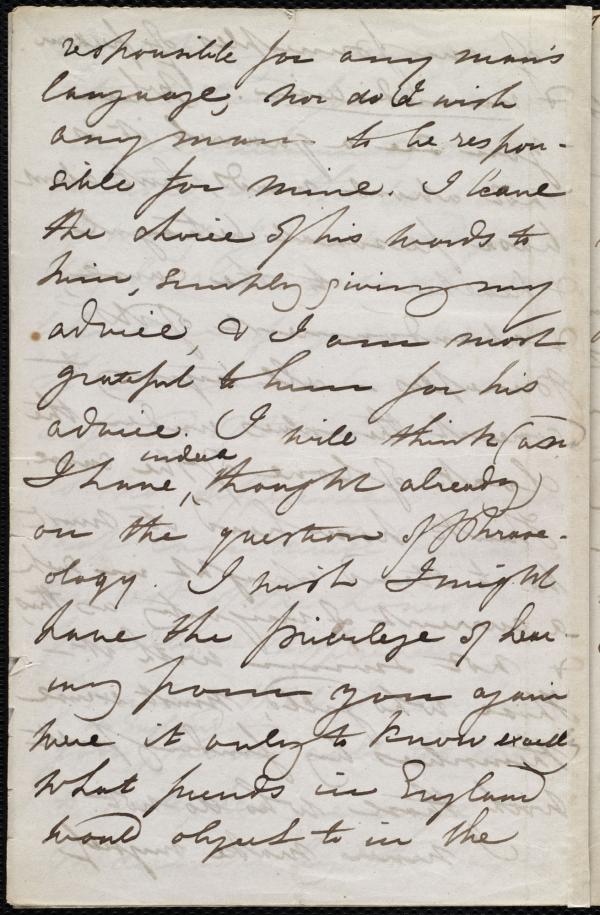 responsible for any man's
language, nor do I wish
any man to be respon-
sible for mine. I leave
the choice of his words to
him, simply giving my
advice, & I am most
grateful to him for his
advice. I will think (as
indeed
I have, thought already)
on the question of Phrase-
ology. I wish I might
have the privilege of hear-
ing from you again
were it only to know exactly
what friends in England
would object to in the